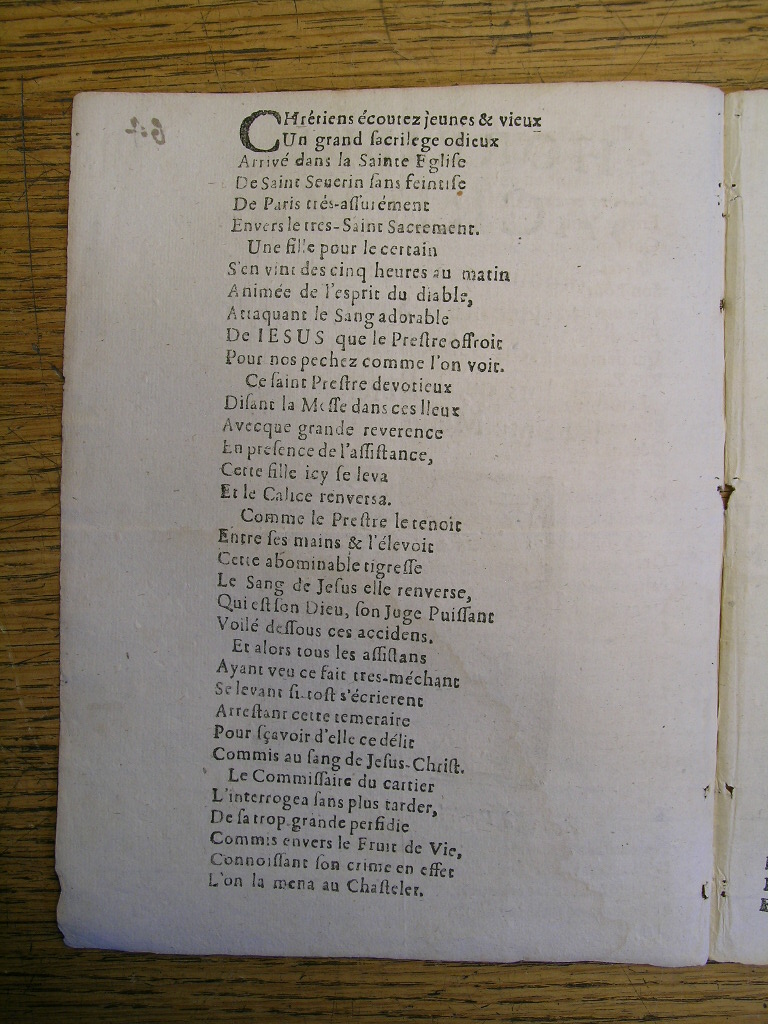 CHrétiens écoutez jeunes & vieux
Un grand sacrilege odieux
Arrivé dans la Sainte Eglise
De Saint Seuerin sans feintise
De Paris trés-assurément
Envers le tres-Saint Sacrement.
Une fille pour le certain
S'en vint des cinq heures au matin
Animée de l'esprit du diable,
Attaquant le Sang adorable
De IESUS que le Prestre offroit
Pour nos pechez comme l'on voit.
Ce saint Prestre devotieux
Disant la Messe dans ces lieux
Avecque grande reverence
En presence de l'assistance,
Cette fille icy se leva
Et le Calice renversa.
Comme le Prestre le tenoit
Entre ses mains & l'élevoit
Cette abominable tigresse
Le Sang de Jesus elle renverse,
Qui est son Dieu, son Juge Puissant
Voilé dessous ces accidens.
Et alors tous les assistans
Ayant veu ce fait tres-méchant
Se levant si-tost s'écrierent
Arrestant cette temeraire
Pour sçavoir d'elle ce délit
Commis au sang de Jesus-Christ.
Le Commissaire du cartier
L'interrogea sans plus tarder,
De sa trop grande perfidie
Commis envers le Fruit de Vie,
Connoissant son crime en effet
L'on la mena au Chastelet.